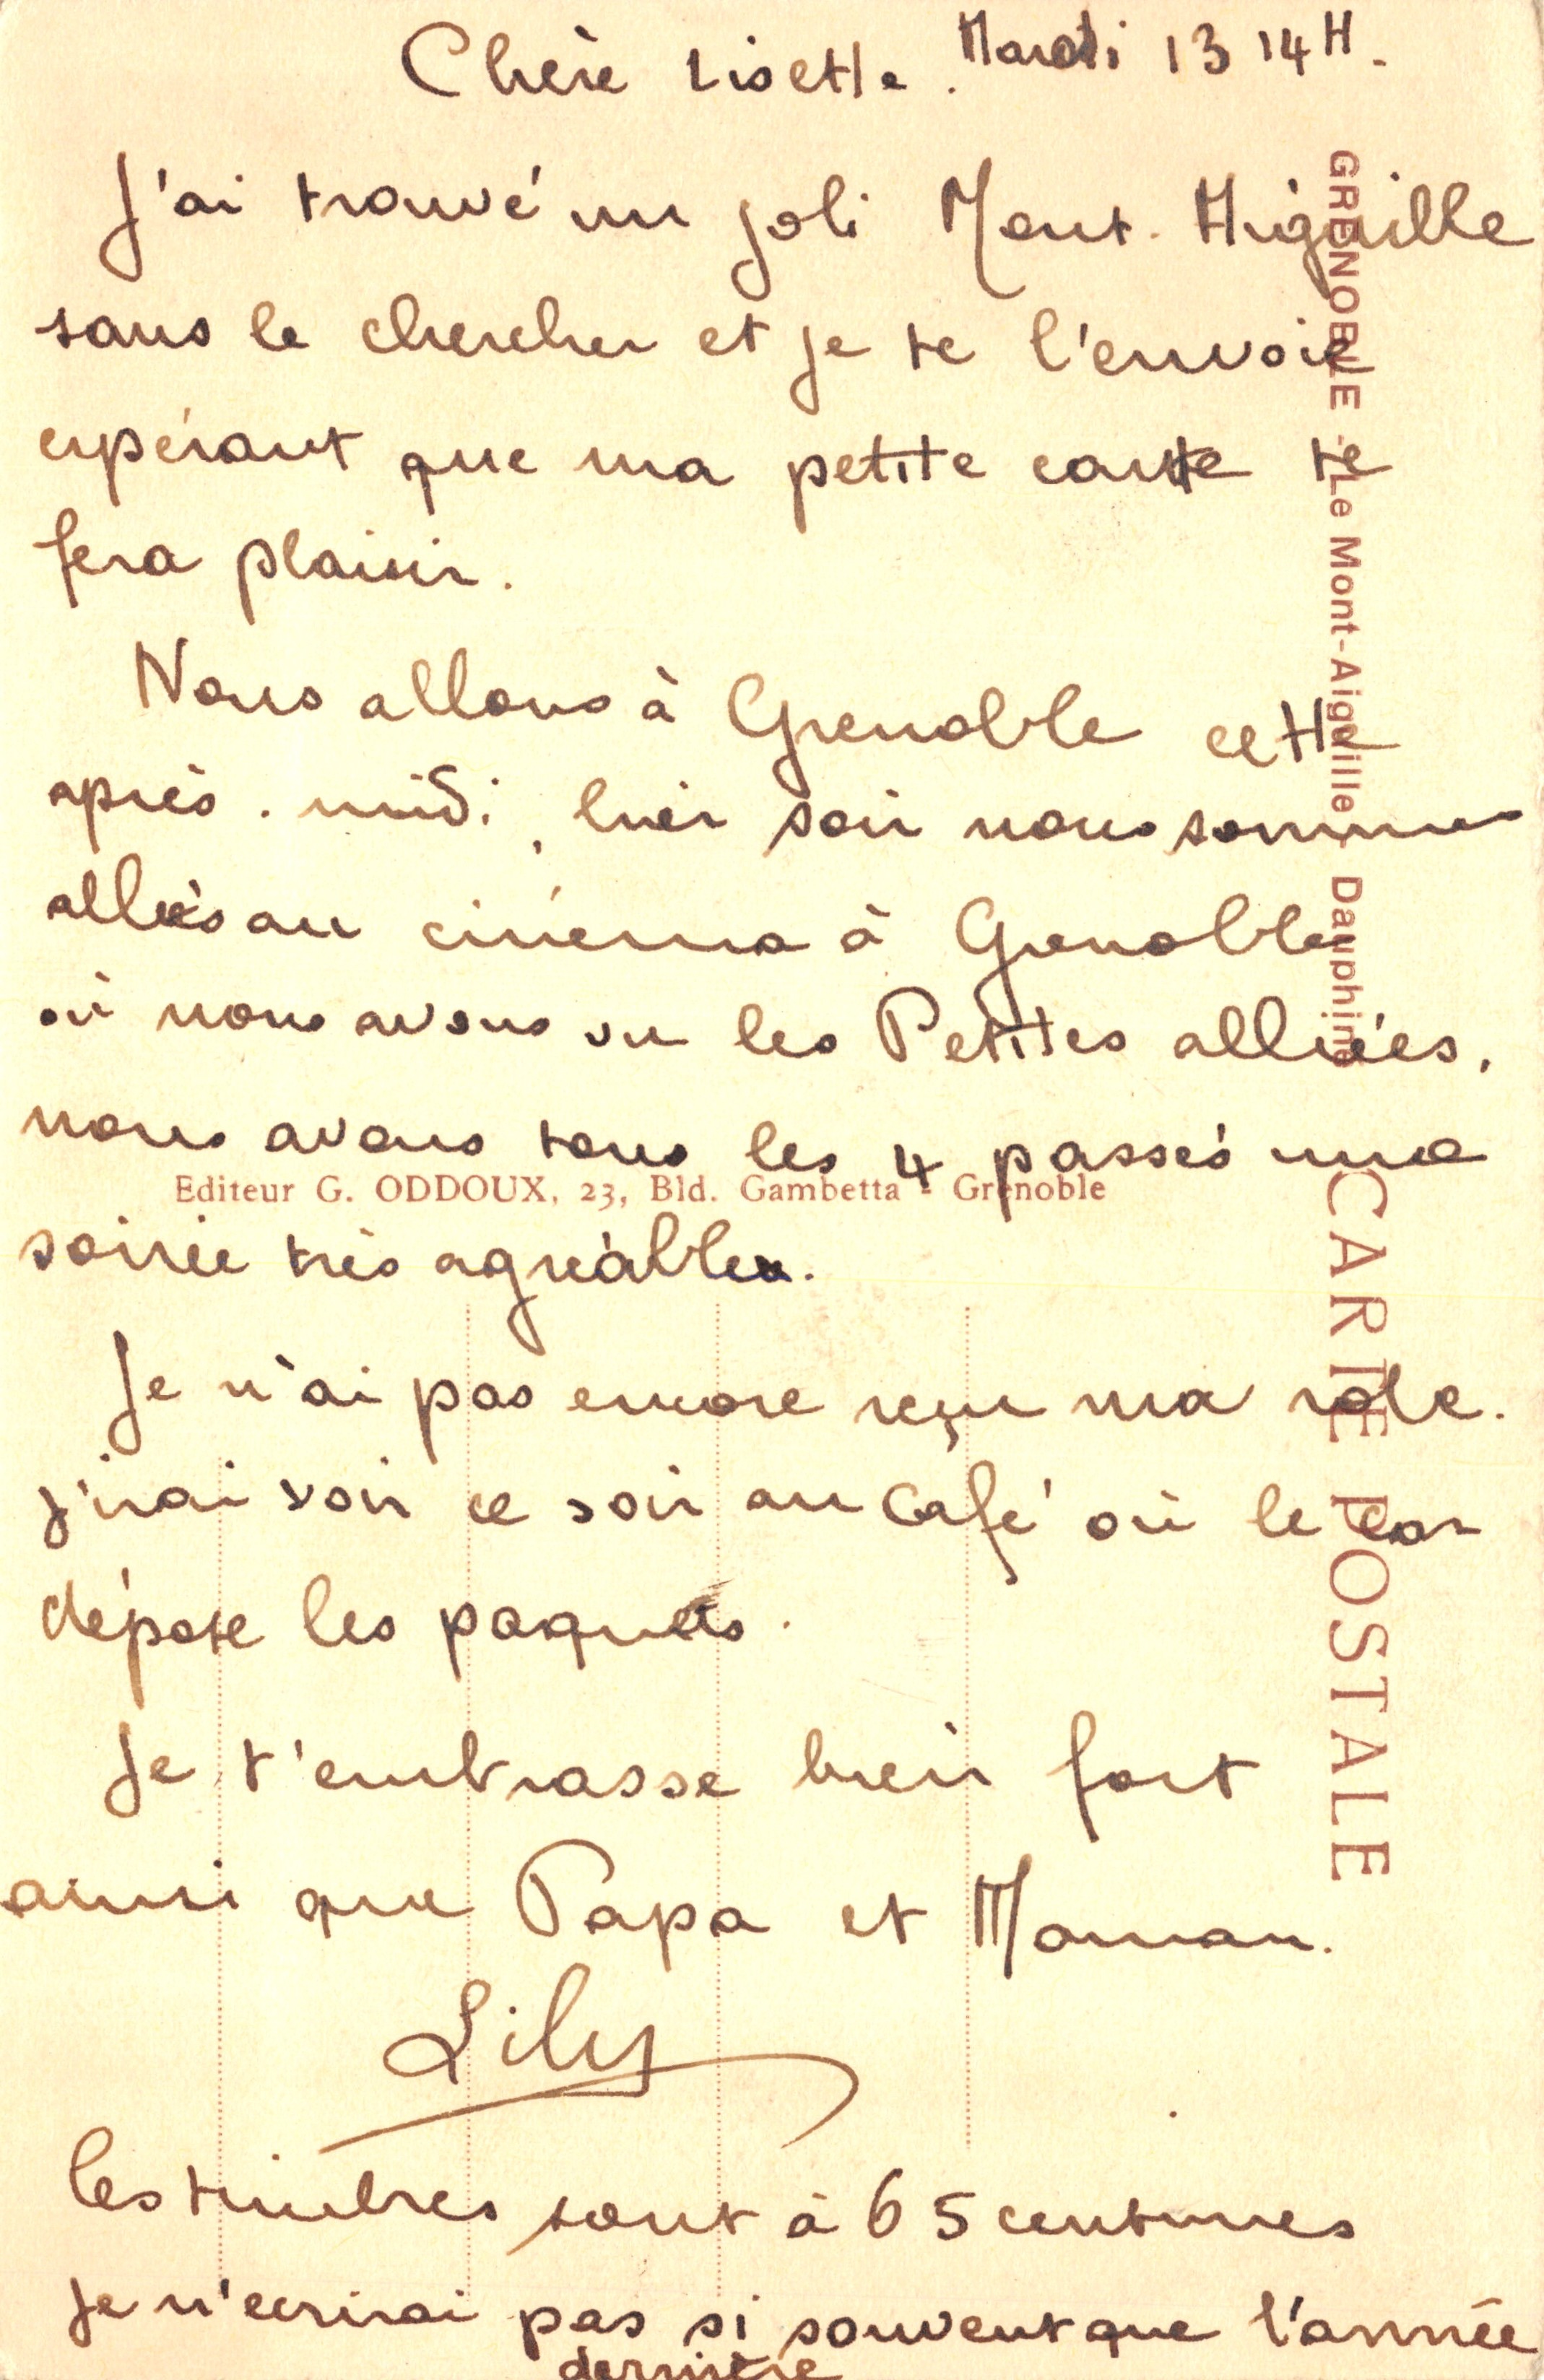 Chère Lisette. Mardi 13 14H.
J'ai trouvé un joli Mont-Aiguille
sans le chercher et je te l'envoie
espérant que ma petite carte te
fera plaisir.
Nous allons à Grenoble cette
après-midi, hier soir nous sommes
allés au cinéma à Grenoble
où nous avons vu les Petites alliées,
nous avons tous les 4 passés une
soirée très agréable.
Je n'ai pas encore reçu ma robe.
j'irai voir ce soir au Café où le car
dépose les paquets.
Je t'embrasse bien fort
ainsi que Papa et Maman.
Lily
les timbres sont à 65 centimes
je n'ecrirai pas si souvent que l'année
dernière
GRENOBLE - Le Mont-Aiguille - Dauphiné
CARTE POSTALE
Editeur G. ODDOUX, 23, Bld. Gambetta - Grenoble